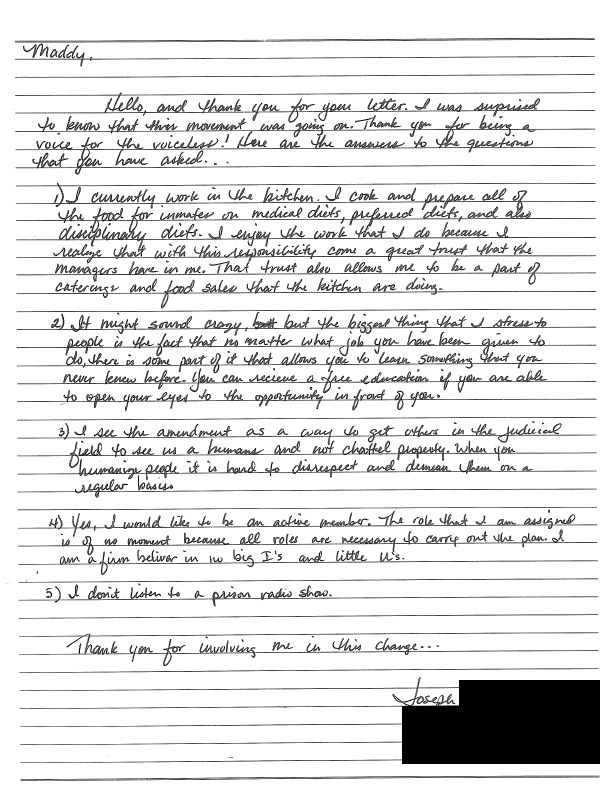 Maddy,
Hello, and thank you for your letter. I was suprised
to know that this movement was going on. Thank you for being a
voice for the voiceless! Here are the answers to the questions
that you have asked...
1) I currently work in the kitchen. I cook and prepare all of
the food for inmates on medical diets, preferred diets, and also
disciplinary diets. I enjoy the work that I do because I
realize that with this responsibility come a great trust that the
managers have in me. That trust also allows me to be a part of
caterings and food sales that the kitchen are doing.
2) It might sound crazy, but the biggest thing that I stress to
people is the fact that no matter what job you have been given to
do, there is some part of it that allows you to learn something that you
never knew before. You can recieve a free education if you are able
to open your eyes to the opportunity in front of you.
3) I see the amendment as a way to get others in the judicial
field to see us a humans and not chattel property. When you
humanize people it is hard to disrespect and demean them on a
regular basis.
4) Yes, I would like to be an active member. The role that I am assigned
is of no moment because all roles are necessary to carry out the plan. I
am a firm beliver in no big I's and little U's.
5) I don't listen to a prison radio show.
Thank you for involving me in this change...
Joseph